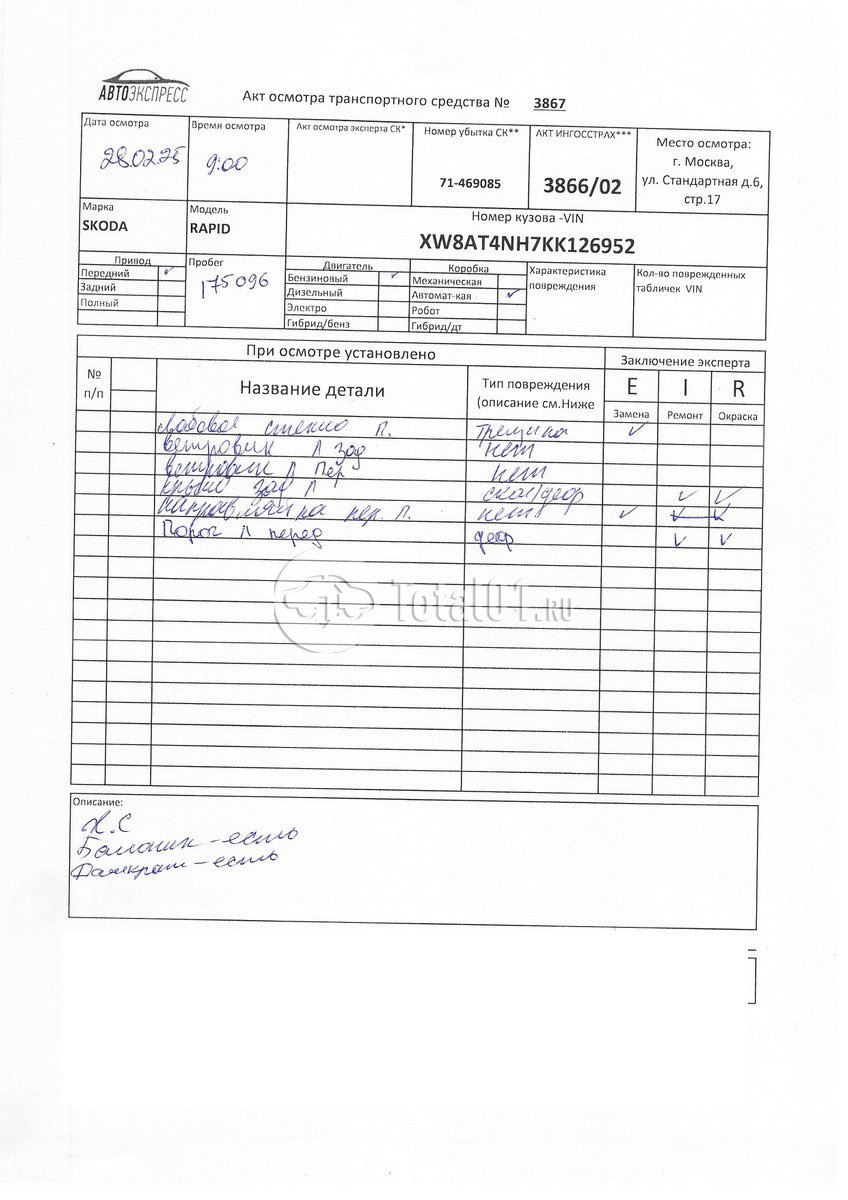 АВТОЭКСПРЕСС
Акт осмотра транспортного средства № 3867
Дата осмотра
28.02.25
Время осмотра
9:00
Акт осмотра эксперта СК*
Номер убытка СК**
71-469085
АКТ ИНГОССТРАХ***
3866/02
Место осмотра:
г. Москва,
ул. Стандартная д.6,
стр.17
Марка
SKODA
Модель
RAPID
Номер кузова -VIN
XW8AT4NH7KK126952
Привод
Передний ✓
Задний
Полный
Пробег
175096
Двигатель
Бензиновый ✓
Дизельный
Электро
Гибрид/бенз
Коробка
Механическая
Автомат-кая ✓
Робот
Гибрид/дт
Характеристика
повреждения
Кол-во поврежденных
табличек VIN
При осмотре установлено
Заключение эксперта
№
п/п
Название детали
Тип повреждения
(описание см.Ниже
E I R
Замена Ремонт Окраска
Лобовое стекло П. трещина ✓
Ветровик Л зад нет
Ветровик Л пер нет
крыло зад Л скол/деф ✓ ✓
пер. П. нет ✓ ✓ ✓
Порог Л перед деф ✓ ✓
Total01.RU
Описание:
Х.С
Балоник - есть
Домкрат - есть